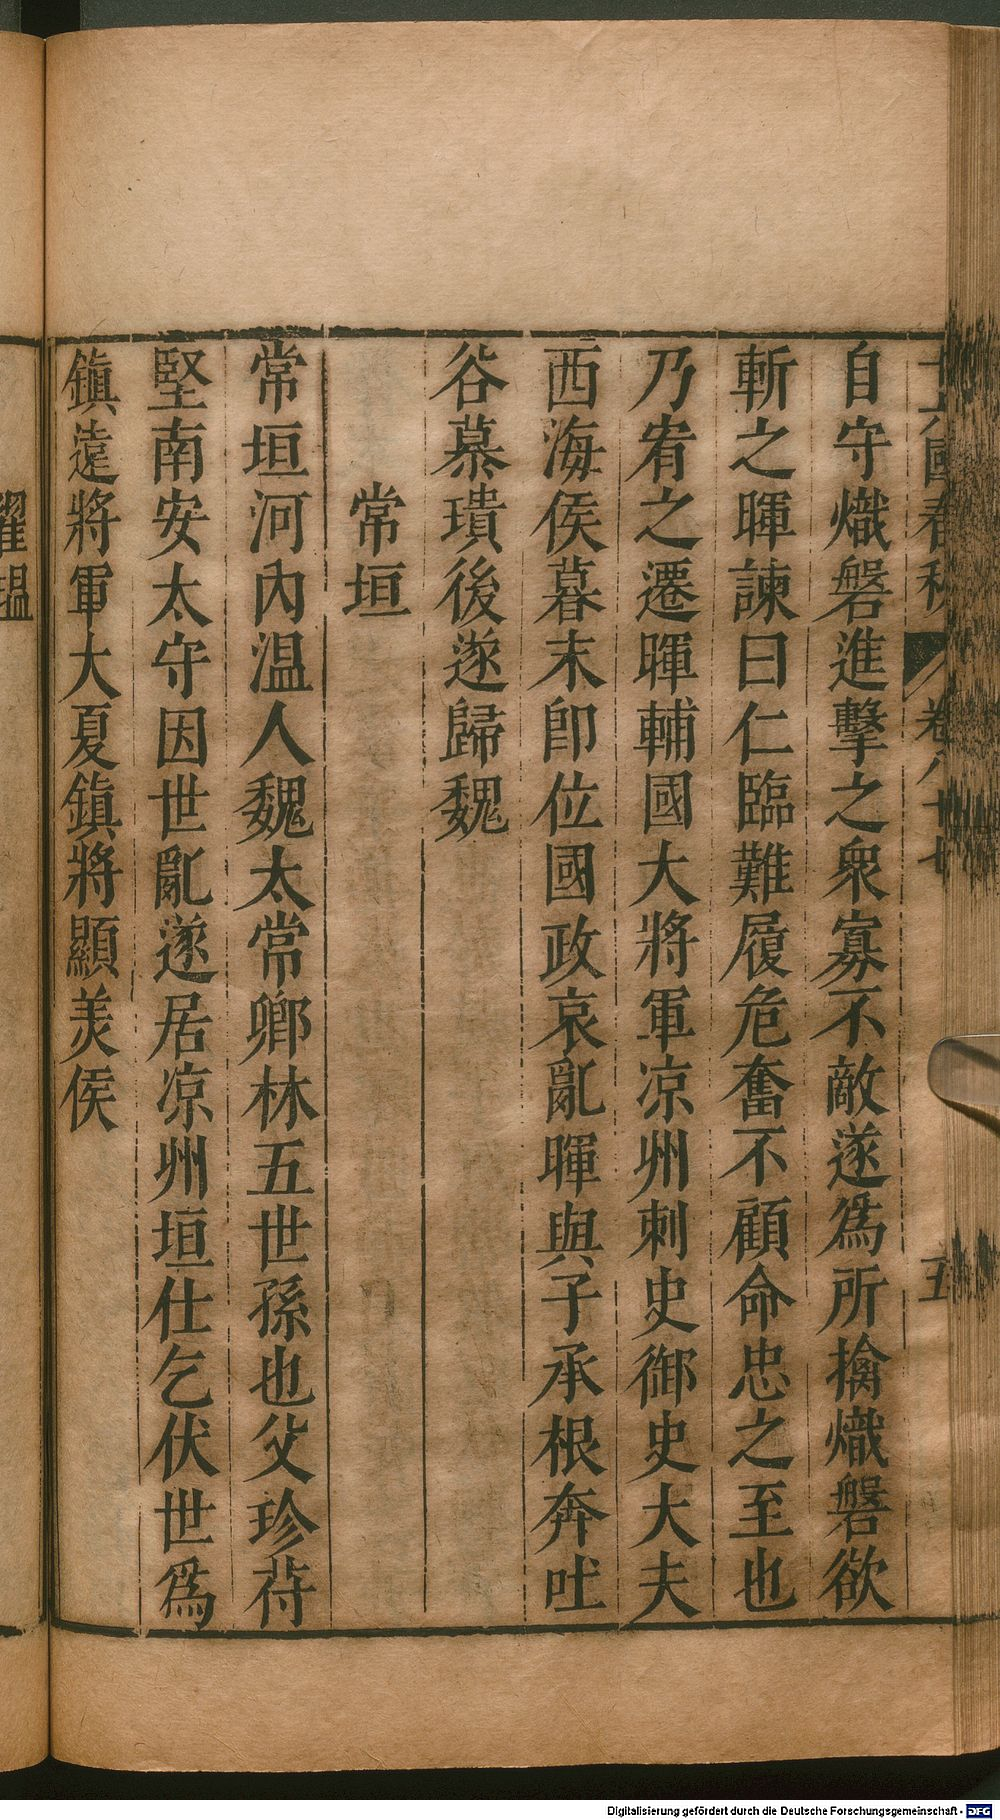 十六國春秋 卷八十七 五
自守熾磐進擊之衆寡不敵遂爲所擒熾磐欲
斬之暉諫曰仁臨難履危奮不顧命忠之至也
乃宥之遷暉輔國大將軍凉州刺史御史大夫
西海侯暮末卽位國政哀亂暉與子承根奔吐
谷慕璝後遂歸魏
常垣
常垣河內温人魏太常卿林五世孫也父珍苻
堅南安太守因世亂遂居凉州垣仕乞伏世爲
鎮遠將軍大夏鎮將顯羙侯
翟瑥
Digitalisierung gefördert durch die Deutsche Forschungsgemeinschaft - DFG